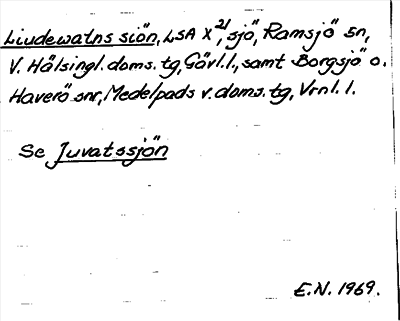 Liudewatns siön, LSA X 21, sjö, Ramsjö sn,
V. Hälsingl. doms. tg, Gävl. l., samt Borgsjö o.
Haverö snr, Medelpads v. doms. tg, Vrnl. l.
Se Juvatssjön
E.N. 1969.